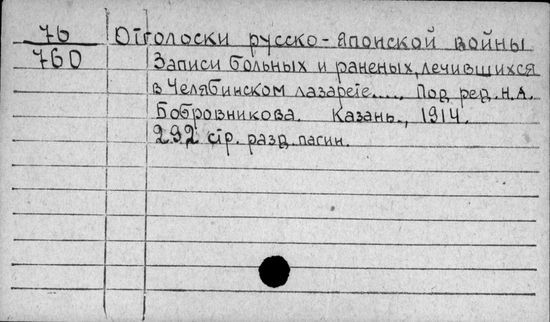 76 Отголоски русско-японской войны
760 Записи больных и раненых, лечившихся
в Челябинском лазарете...., Под ред. Н.А.
Бобровникова. Казань., 1914.
292 стр. разд. пагин.